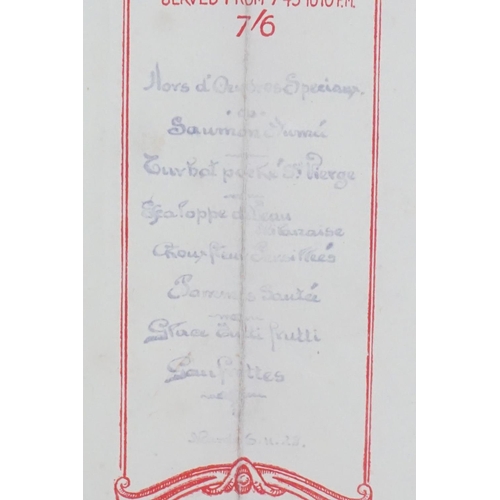 SERVED FROM 7·45 TO 10 P.M.
7/6
Hors d'Oeuvres Speciaux
ou
Saumon Fumé
Turbot poché St Pierge
Escaloppe de Veau
Milanaise
Choux fleur Persillés
Pommes Sauté
Glace Tutti frutti
Gaufrettes